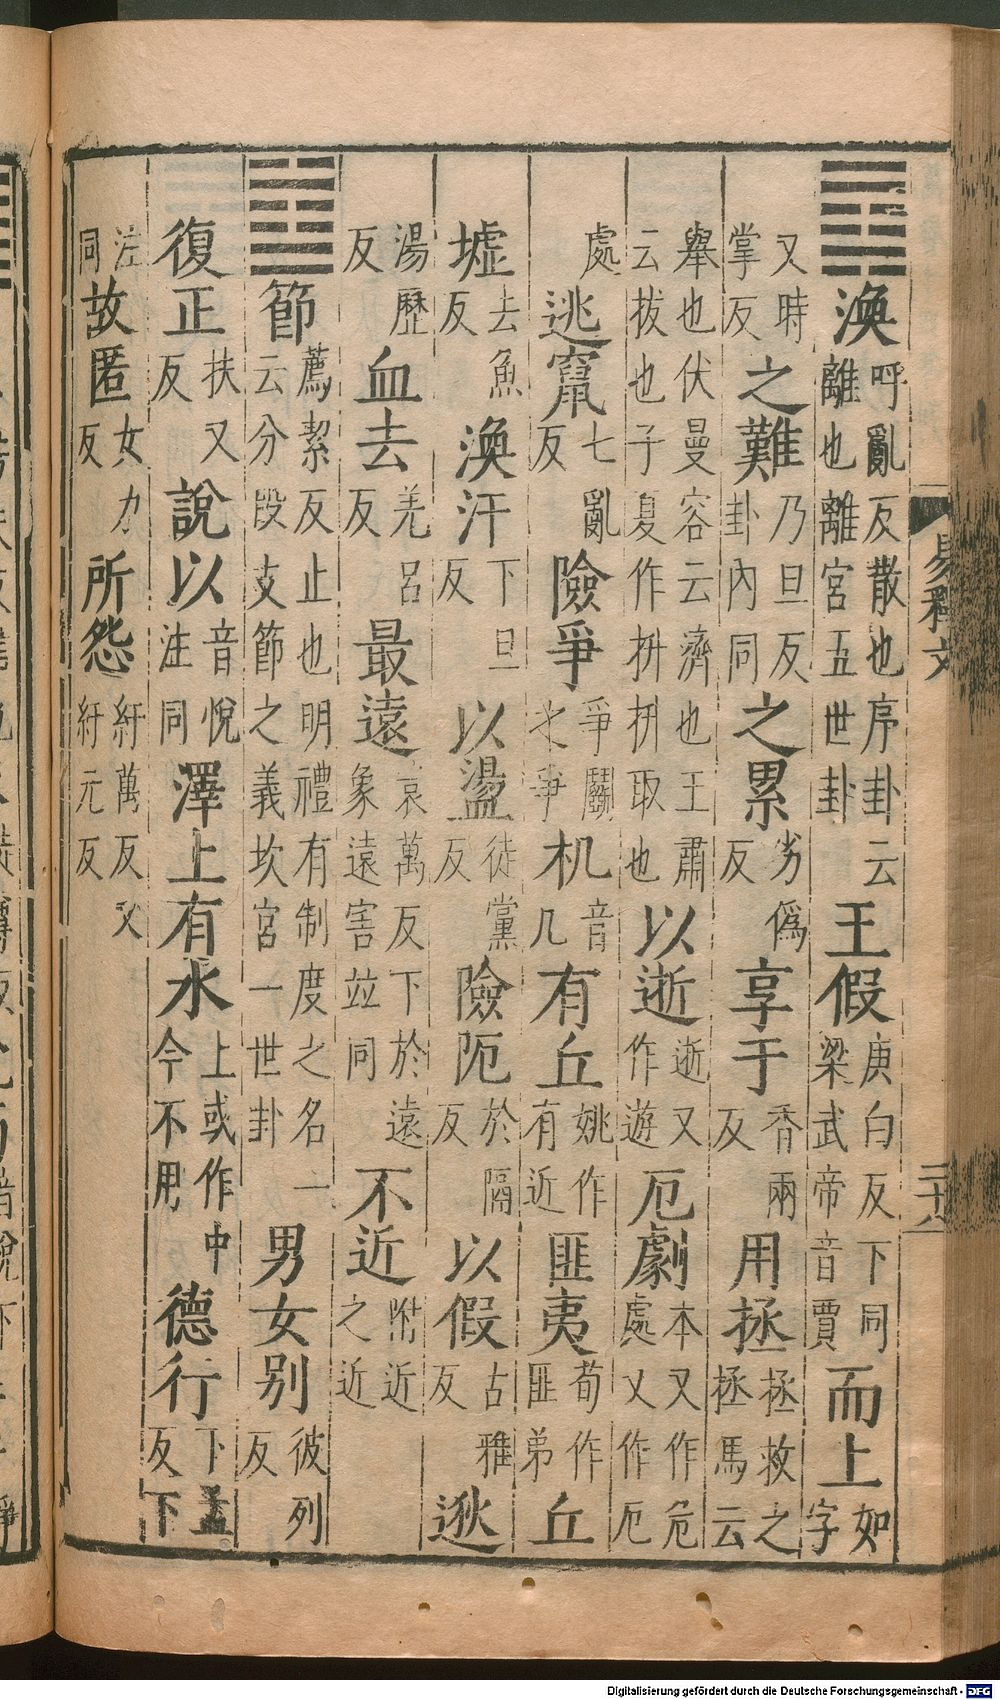 ䷺渙呼亂反散也序卦云離也離宮五世卦王假庚白反下同梁武帝音賈而上如字
又時掌反之難乃旦反卦內同之累劣僞反享于香兩反用拯拯救之拯馬云
舉也伏曼容云濟也王肅云拔也子夏作抍抍取也以逝逝又作遊厄劇本又作危處又作厄
處逃竄七亂反險爭爭鬬之爭机音几有丘姚作有近匪夷荀作匪弟丘
墟去魚反渙汗下旦反以盪徒黨反險阨於隔反以假古雅反逖
湯歷反血去羌呂反最遠袁萬反下於遠象遠害竝同不近附近之近
䷻節薦絜反止也明禮有制度之名一云分段支節之義坎宮一世卦男女別彼列反
復正扶又反說以音悅注同澤上有水上或作中今不用德行下孟反下
注同故匿女力反所怨紆萬反又紆元反
易釋文
二十八
Digitalisierung gefördert durch die Deutsche Forschungsgemeinschaft - DFG